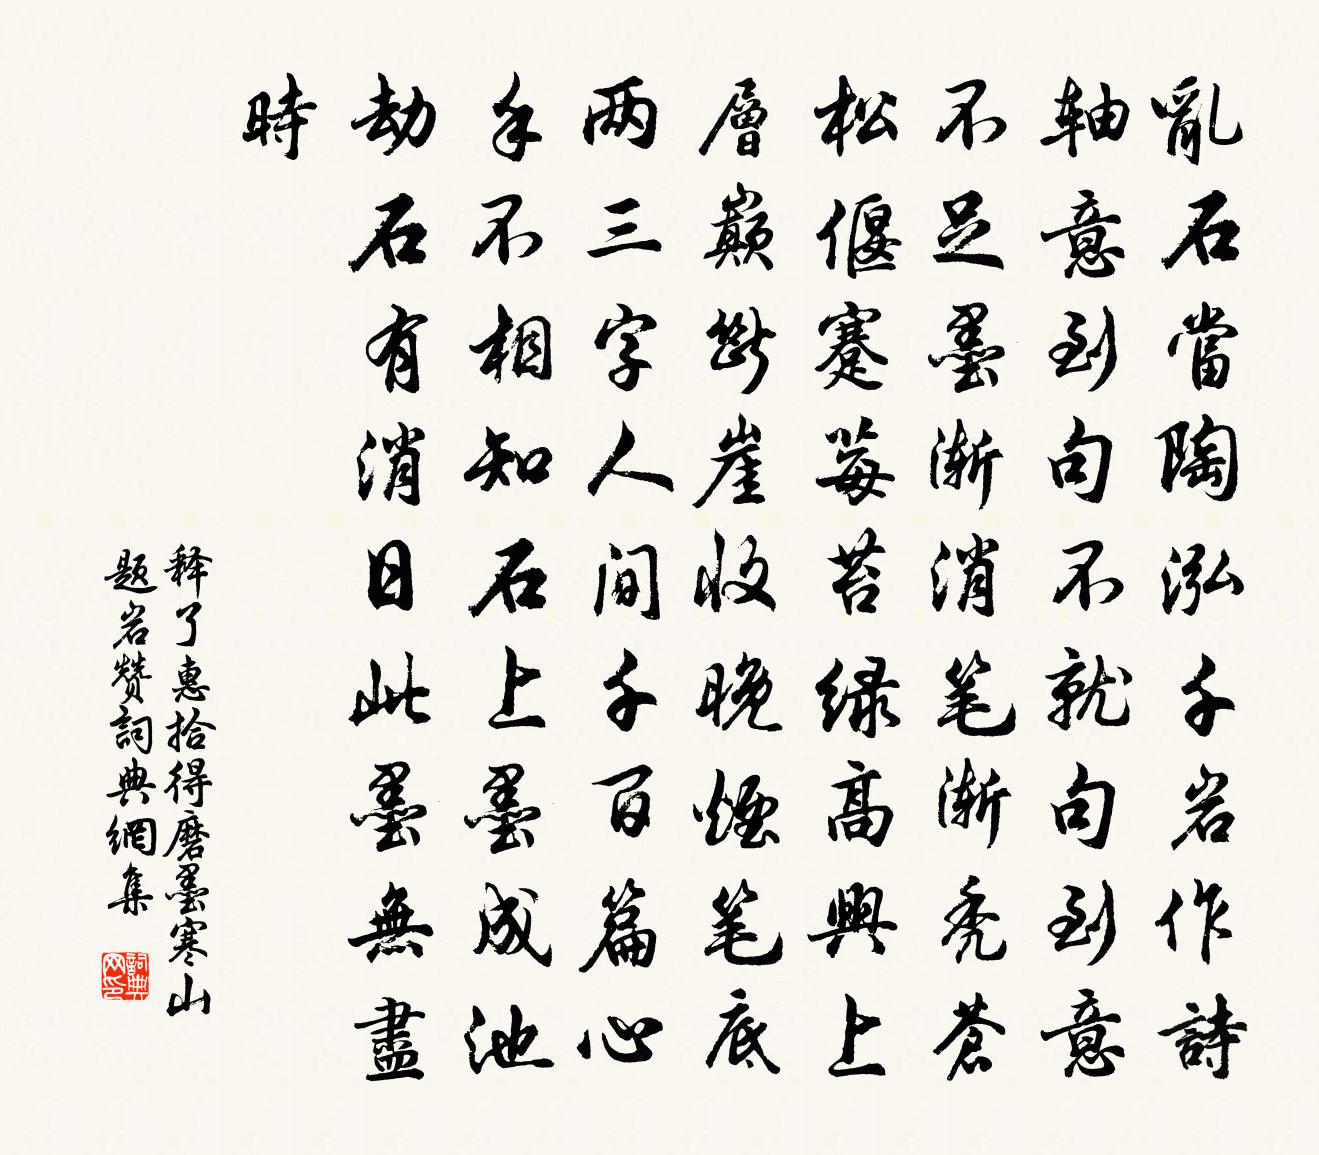 亂石當陶泓千岩作詩
軸意到句不就句到意
不足墨漸消笔漸禿蒼
松偃蹇莓苔绿高興上
層巔斷崖收晚煙笔底
两三字人间千百篇心
手不相知石上墨成池
劫石有消日此墨無盡
時
释了惠拾得磨墨寒山
题岩赞詞典網集
詞典网印